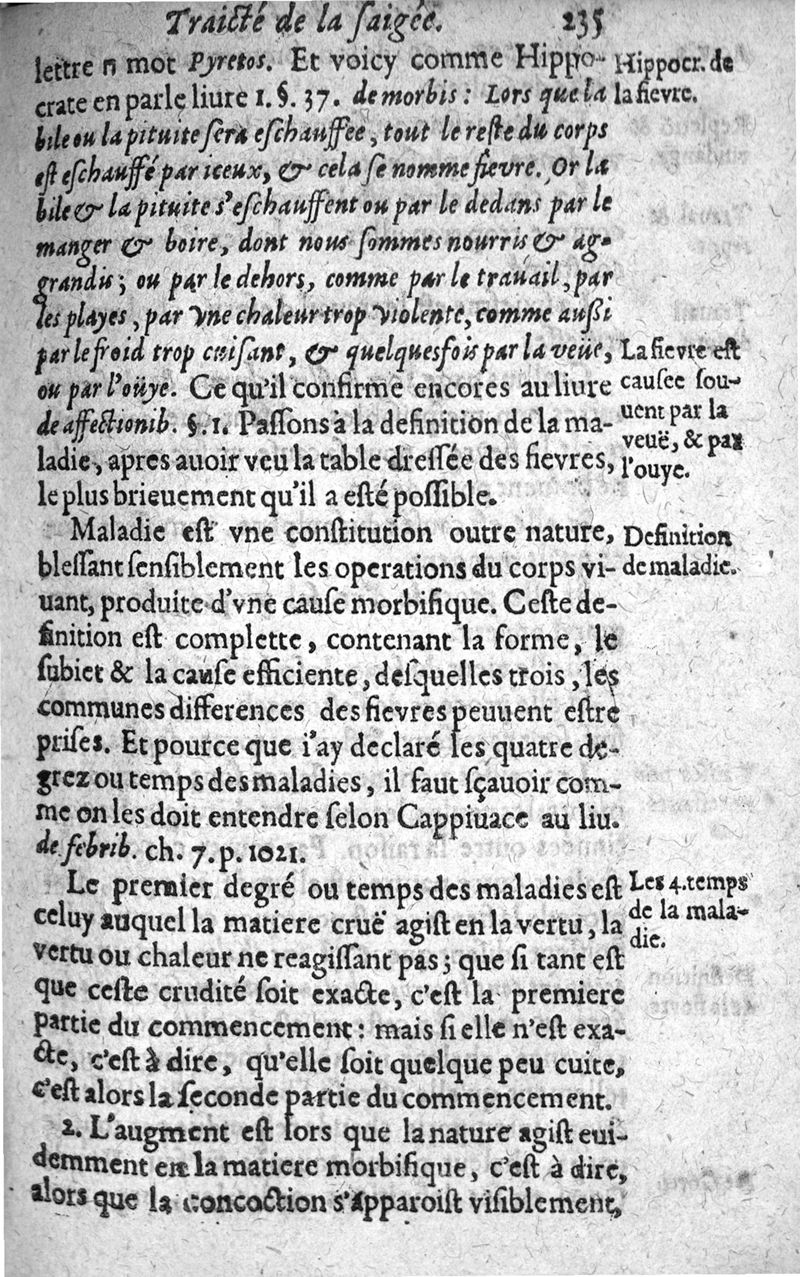 Traicté de la ſaigée. 235
lettre n mot Pyretos. Et voicy comme Hippo-
crate en parle liure 1. §. 37. de morbis: Lors que la
bile ou la pituite ſera eſchauffee, tout le reſte du corps
eſt eſchauffé par iceux, & cela ſe nomme fievre. Or la
bile & la pituite s'eſchauffent ou par le dedans par le
manger & boire, dont nous ſommes nourris & ag-
grandis; ou par le dehors, comme par le trauail, par
les playes, par vne chaleur trop violente, comme auſſi
par le froid trop cuiſant, & quelquesfois par la veuë,
ou par l'oüye. Ce qu'il confirme encores au liure
de affectionib. §. 1. Paſſons à la definition de la ma-
ladie, apres auoir veu la table dreſſée des fievres,
le plus brieuement qu'il a eſté poſſible.
Hippocr. de
la fievre.
La fievre eſt
cauſee ſou-
uent par la
veuë, & par
l'ouye.
Maladie eſt vne conſtitution outre nature,
bleſſant ſenſiblement les operations du corps vi-
uant, produite d'vne cauſe morbifique. Ceſte de-
finition eſt complette, contenant la forme, le
ſubiet & la cauſe efficiente, deſquelles trois, les
communes differences des fievres peuuent eſtre
priſes. Et pource que i'ay declaré les quatre de-
grez ou temps des maladies, il faut ſçauoir com-
me on les doit entendre ſelon Cappiuace au liu.
de febrib. ch. 7. p. 1021.
Definition
de maladie.
Le premier degré ou temps des maladies eſt
celuy auquel la matiere cruë agiſt en la vertu, la
vertu ou chaleur ne reagiſſant pas; que ſi tant eſt
que ceſte crudité ſoit exacte, c'eſt la premiere
partie du commencement: mais ſi elle n'eſt exa-
cte, c'eſt à dire, qu'elle ſoit quelque peu cuite,
c'eſt alors la ſeconde partie du commencement.
Les 4. temps
de la mala-
die.
2. L'augment eſt lors que la nature agiſt eui-
demment en la matiere morbifique, c'eſt à dire,
alors que la concoction s'apparoiſt viſiblement,